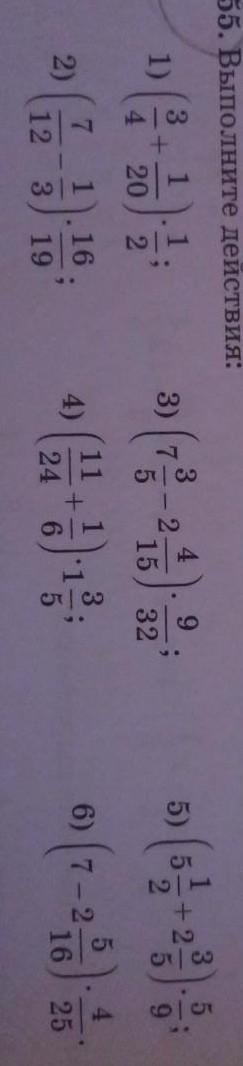 55. Выполните действия:
1) (3/4 + 1/20) · 1/2;
2) (7/12 − 1/3) · 16/19;
3) (7 3/5 − 2 4/15) · 9/32;
4) (11/24 + 1/6) · 1 3/5;
5) (5 1/2 + 2 3/5) · 5/9;
6) (7 − 2 5/16) · 4/25.